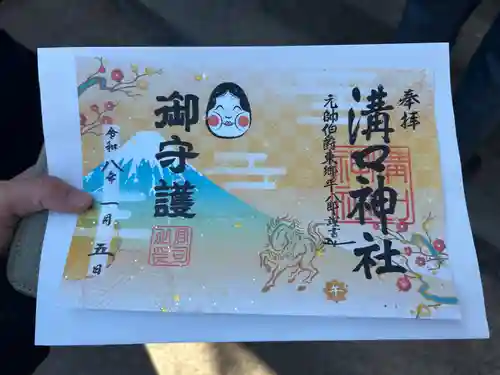 奉拝
溝口神社
元帥伯爵東郷平八郎謹書
御守護
令和八年一月五日
午